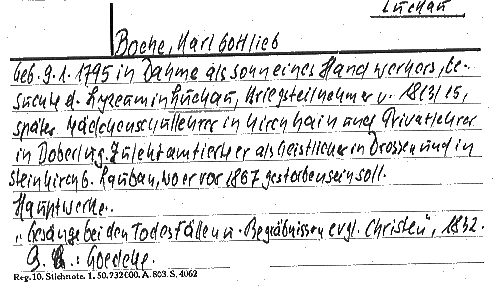 Luckau
Boche, Karl Gottlieb
geb. 9. 1. 1795 in Dahme als Sohn eines Handwerkers, be-
suchte d. Lyzeum in Luckau, Kriegsteilnehmer v. 1813/15,
später Mädchenschullehrer in Kirchhain und Privatlehrer
in Dobrilug. Zuletzt amtierte er als Geistlicher in Drossen und in
Steinkirch b. Lauban, wo er vor 1867 gestorben sein soll.
Hauptwerke:
"Gesänge bei den Todesfällen u. Begräbnissen evgl. Christen", 1832.
Goedeke.
Reg. 10. Stichnote. 1. 50. 732000. A. 803. S. 4062